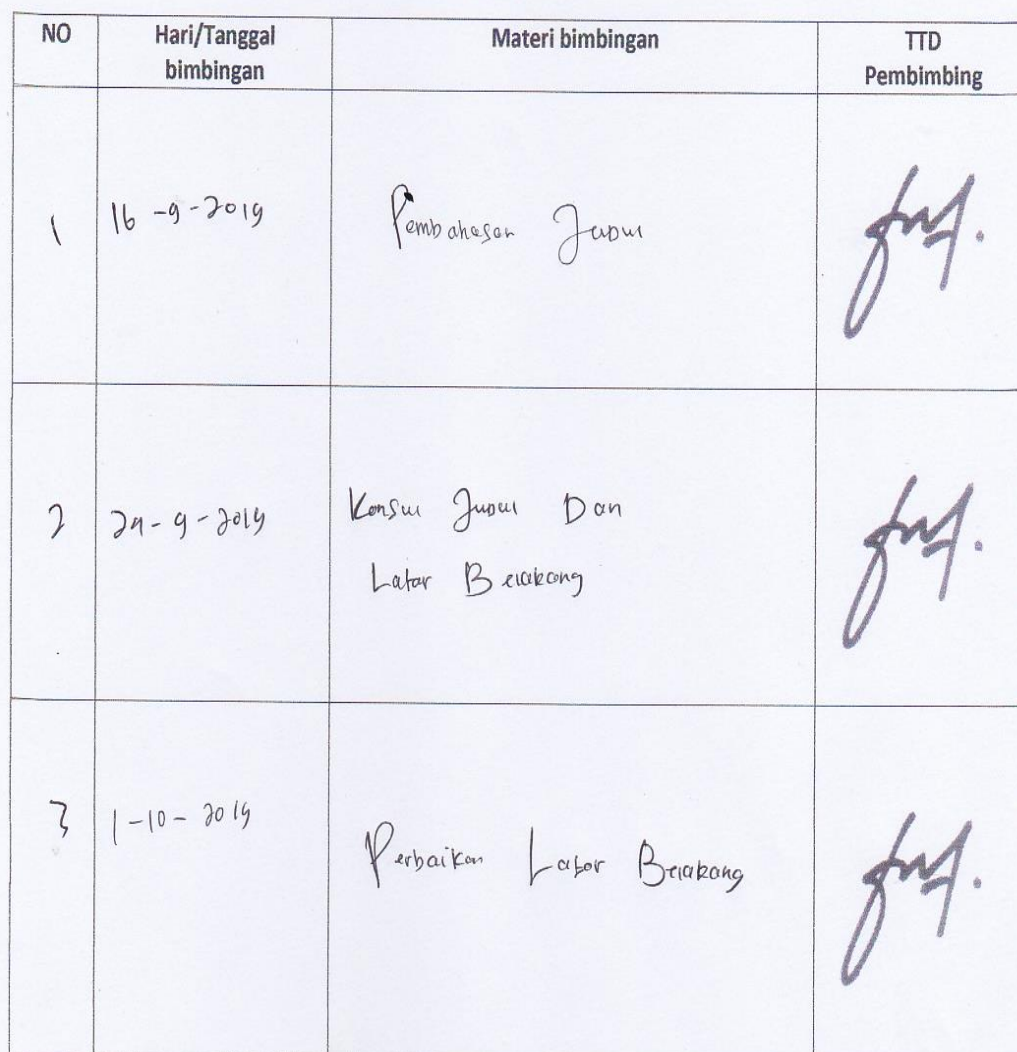 NO
Hari/Tanggal
bimbingan
Materi bimbingan
TTD
Pembimbing
1
16 -9-2019
Pembahasan Judul
2
24-9-2019
Konsul Judul Dan
Latar Belakang
3
1-10-2019
Perbaikan Latar Belakang